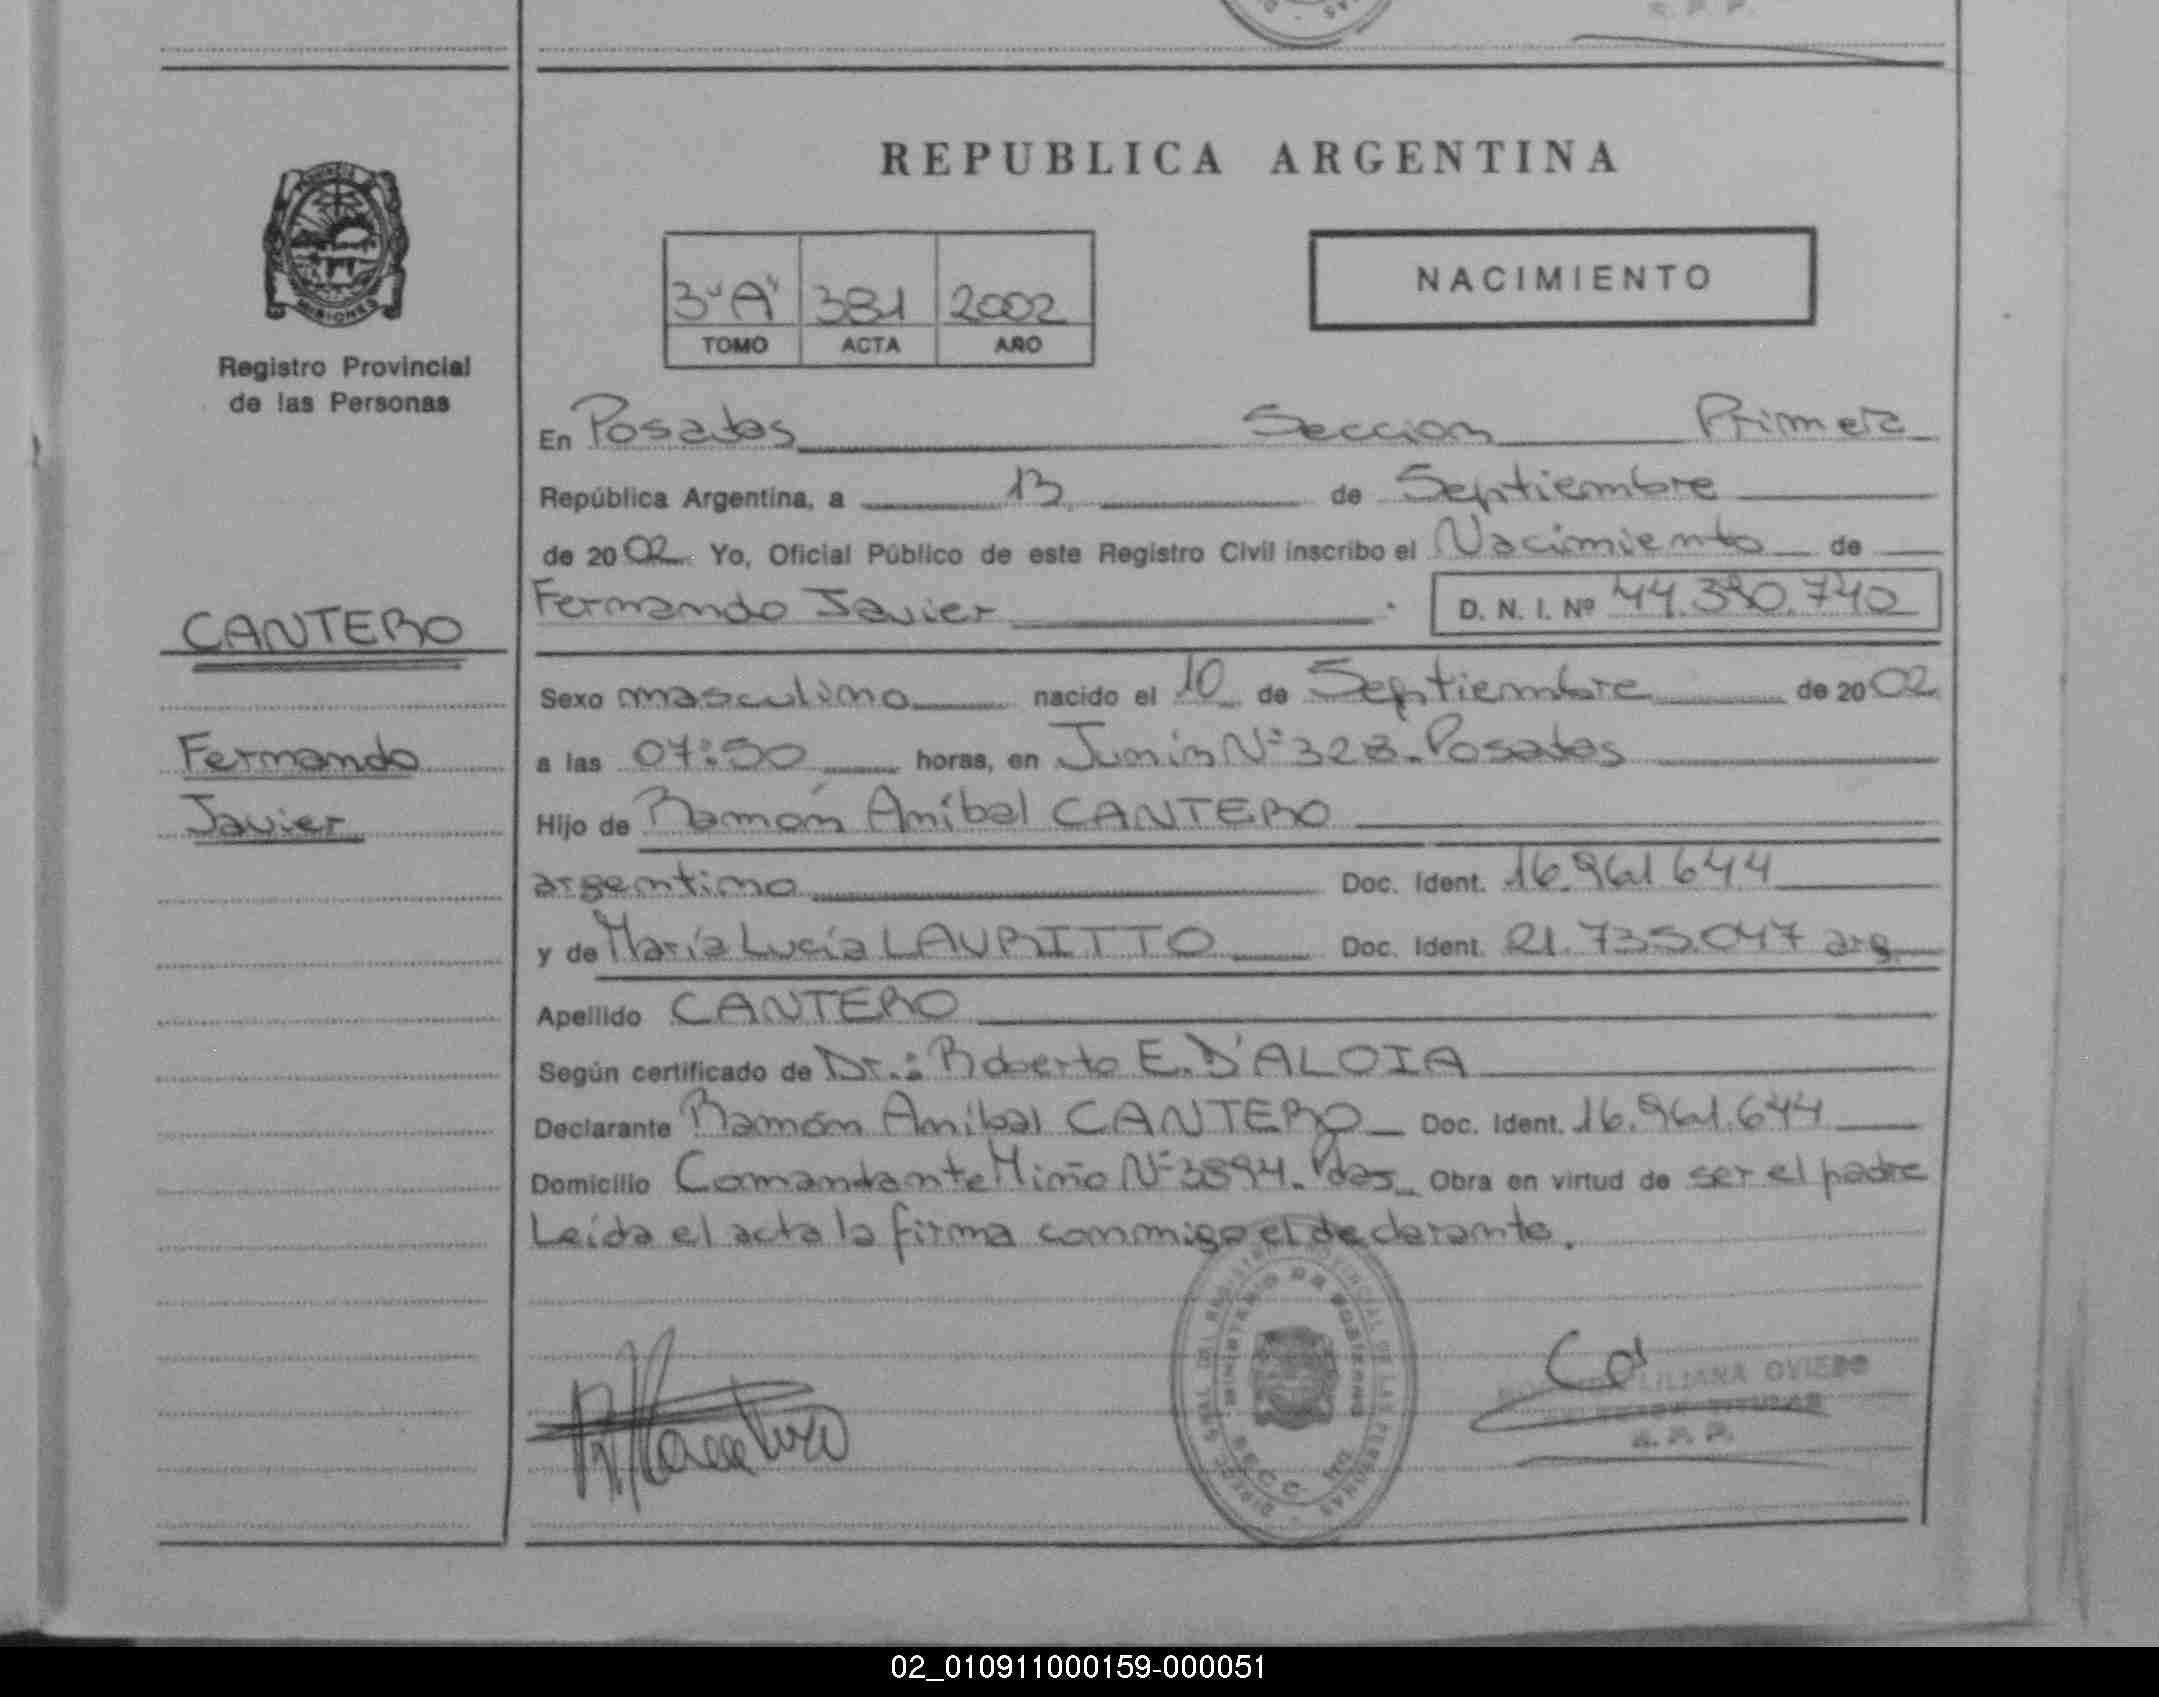 REPUBLICA ARGENTINA
NACIMIENTO
3"A" 381 2002
TOMO ACTA AÑO
MISIONES
Registro Provincial
de las Personas
CANTERO
Fernando
Javier
En Posadas Seccion Primera
República Argentina, a 13 de Septiembre
de 2002 Yo, Oficial Público de este Registro Civil inscribo el Nacimiento de
Fernando Javier D. N. I. Nº 44.390.740
Sexo masculino nacido el 10 de Septiembre de 2002
a las 07:50 horas, en Junín Nº 328. Posadas
Hijo de Ramón Aníbal CANTERO
argentino Doc. Ident. 16.961 644
y de María Lucía LAURITTO Doc. Ident. 21.735.047 arg
Apellido CANTERO
Según certificado de Dr.: Roberto E. D'ALOIA
Declarante Ramón Aníbal CANTERO Doc. Ident. 16.961.644
Domicilio Comandante Miño Nº 3894. Pdas Obra en virtud de ser el padre
Leída el acta la firma conmigo el declarante.
LILIANA OVIEDO
TITULAR
R. P. P.
02_010911000159-000051